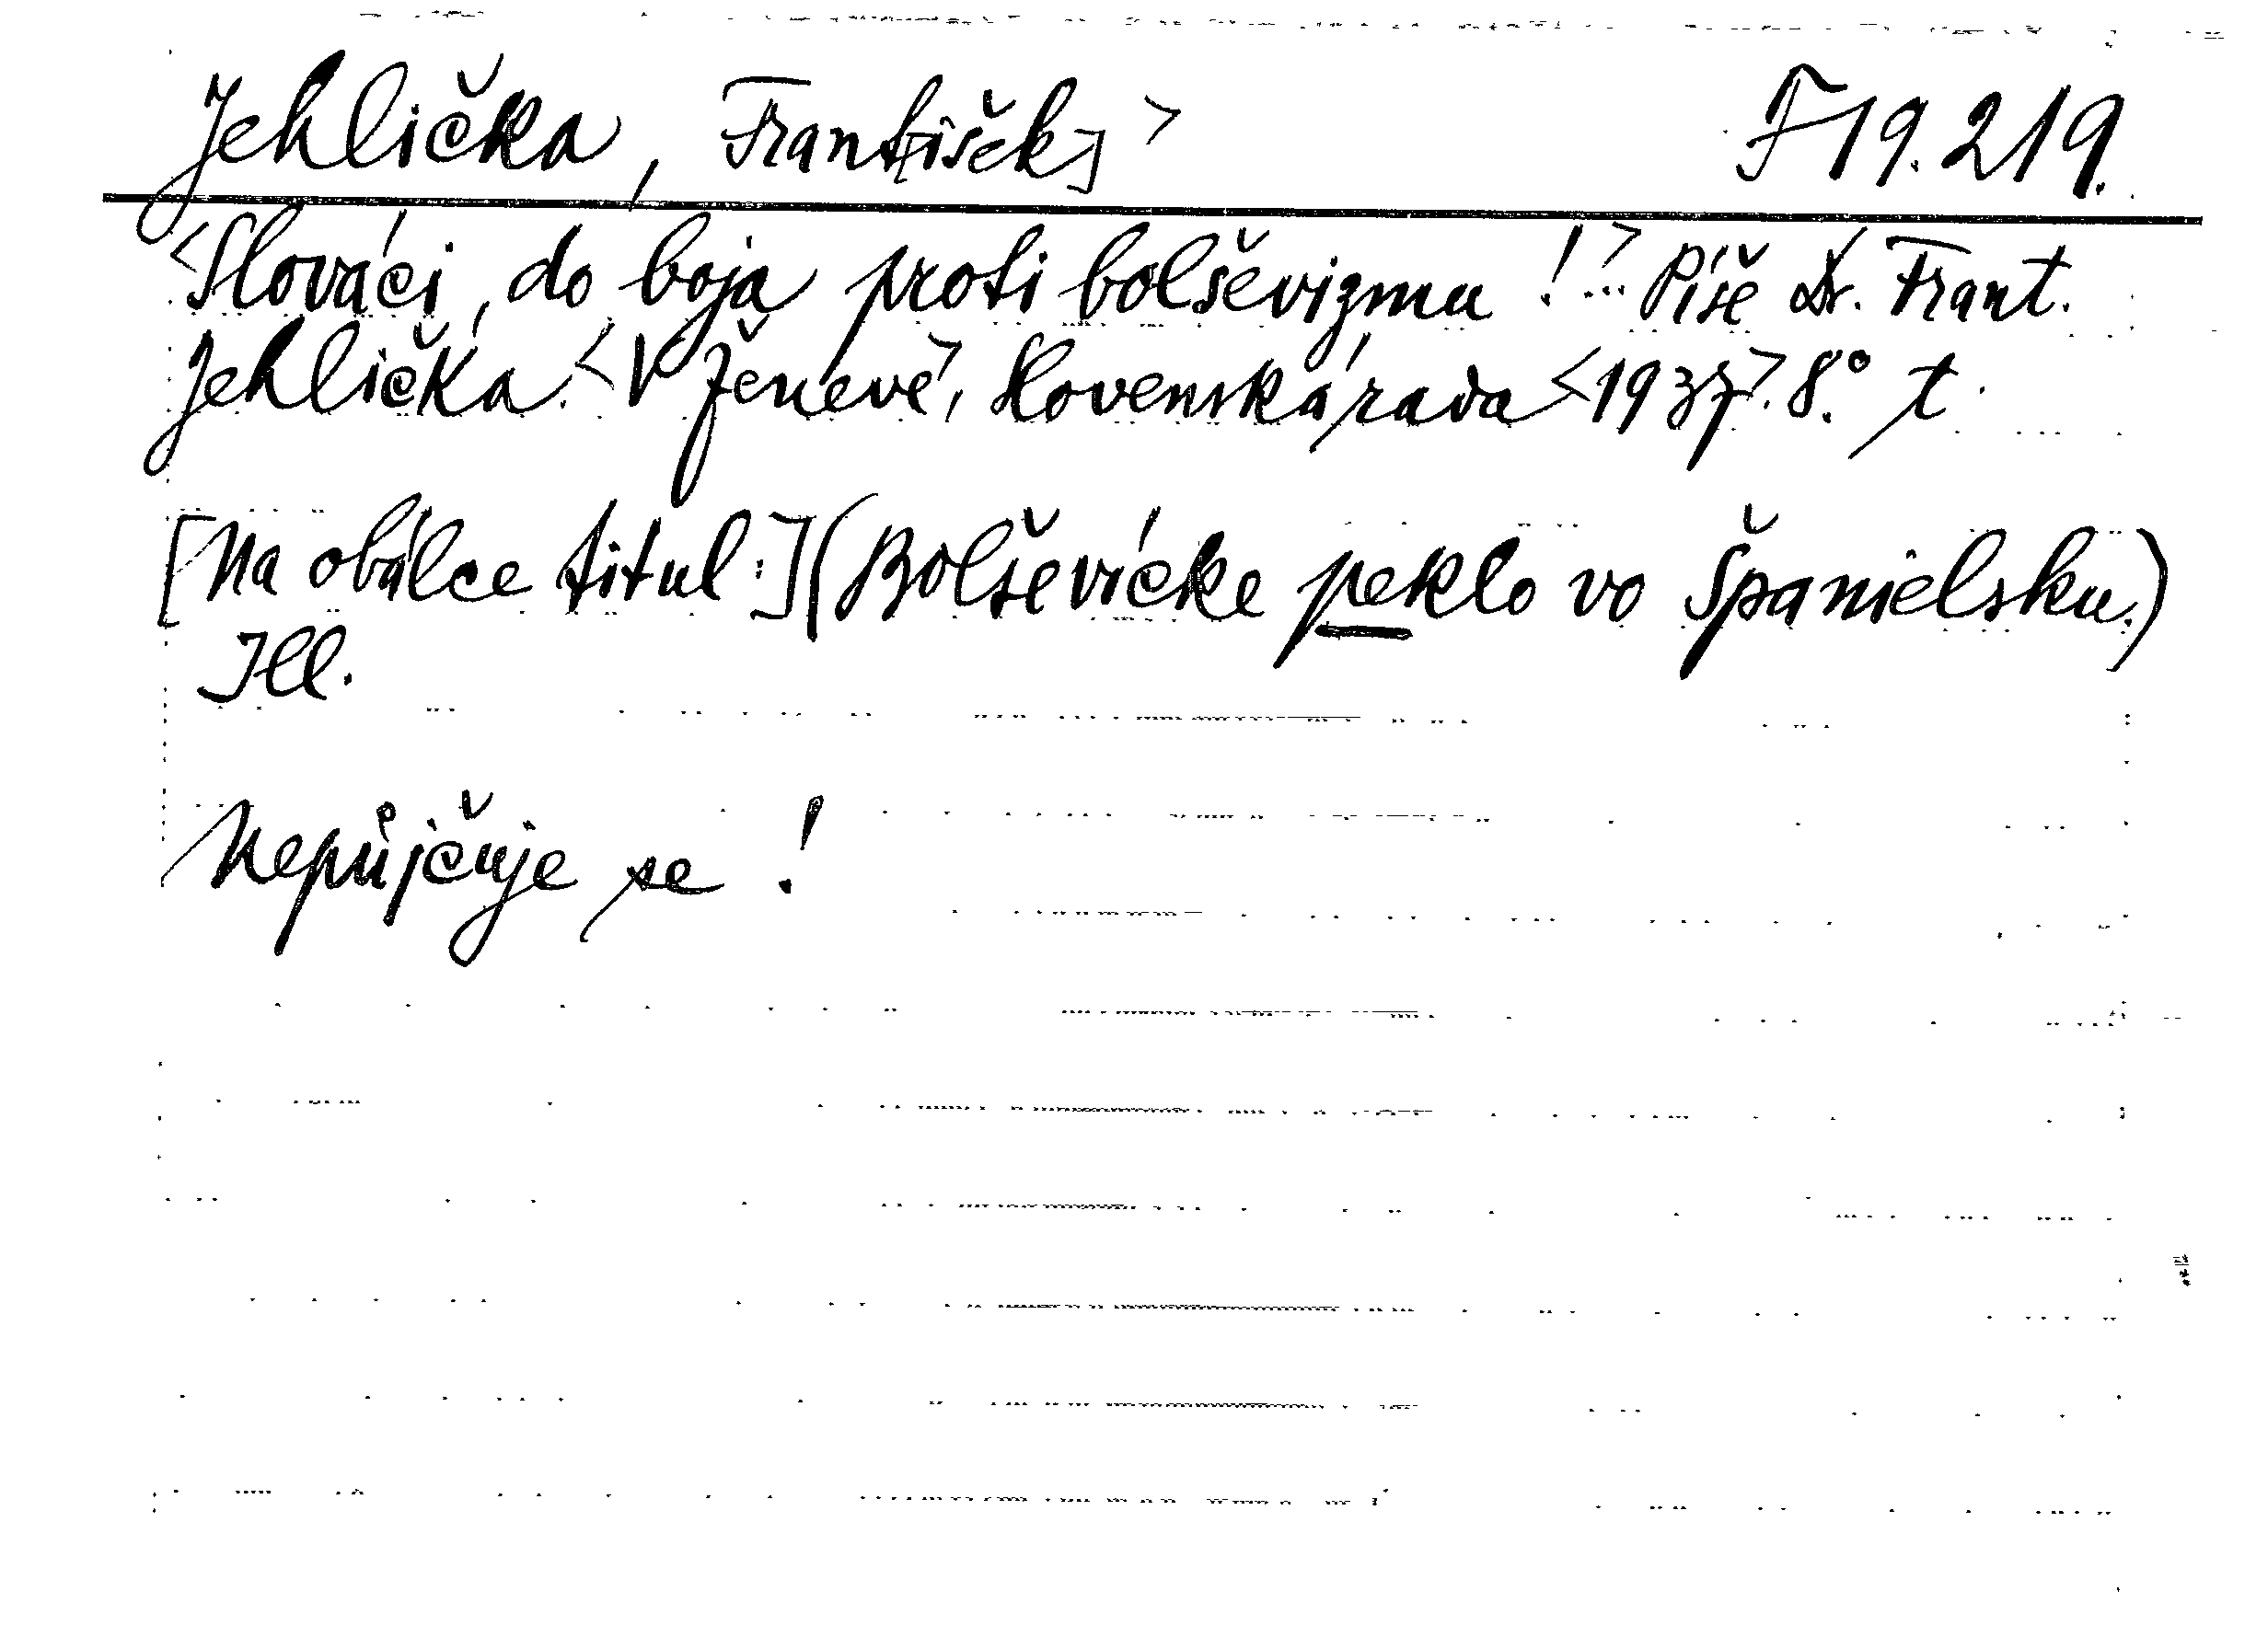 Jehlička, Frant[išek] > F 19.219.
<Slováci, do boja proti bolševizmu!>... Píše Dr. Frant.
Jehlička. <V Ženevě>, Slovenská rada <1937>. 8.° t.
[Na obálce titul:] (Bolševické peklo vo Španielsku.)
Ill.
Nepůjčuje se!